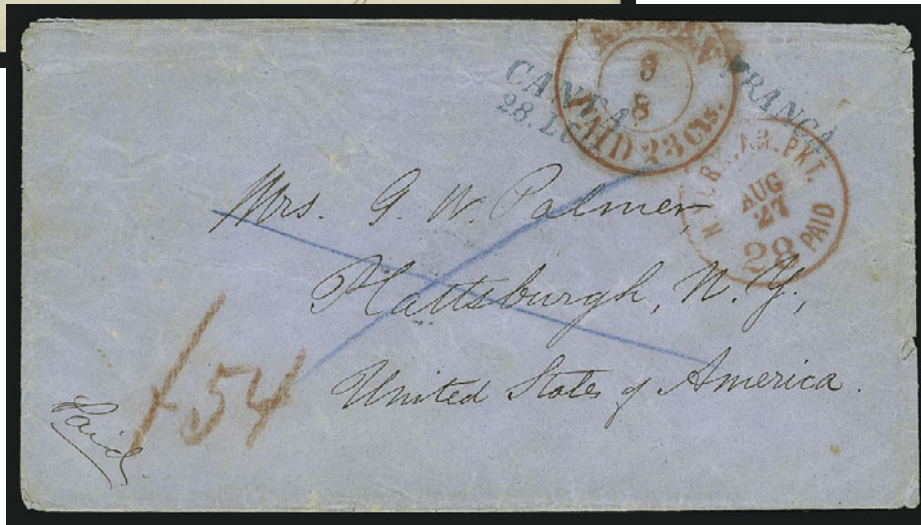 CANEA
28. LUG
FRANCA
9
8
PAID 23 Cts.
N. YORK AM. PKT.
AUG
27
28 PAID
Mrs. G. W. Palmer,
Plattsburgh, N. Y.,
United States of America.
54
Paid.